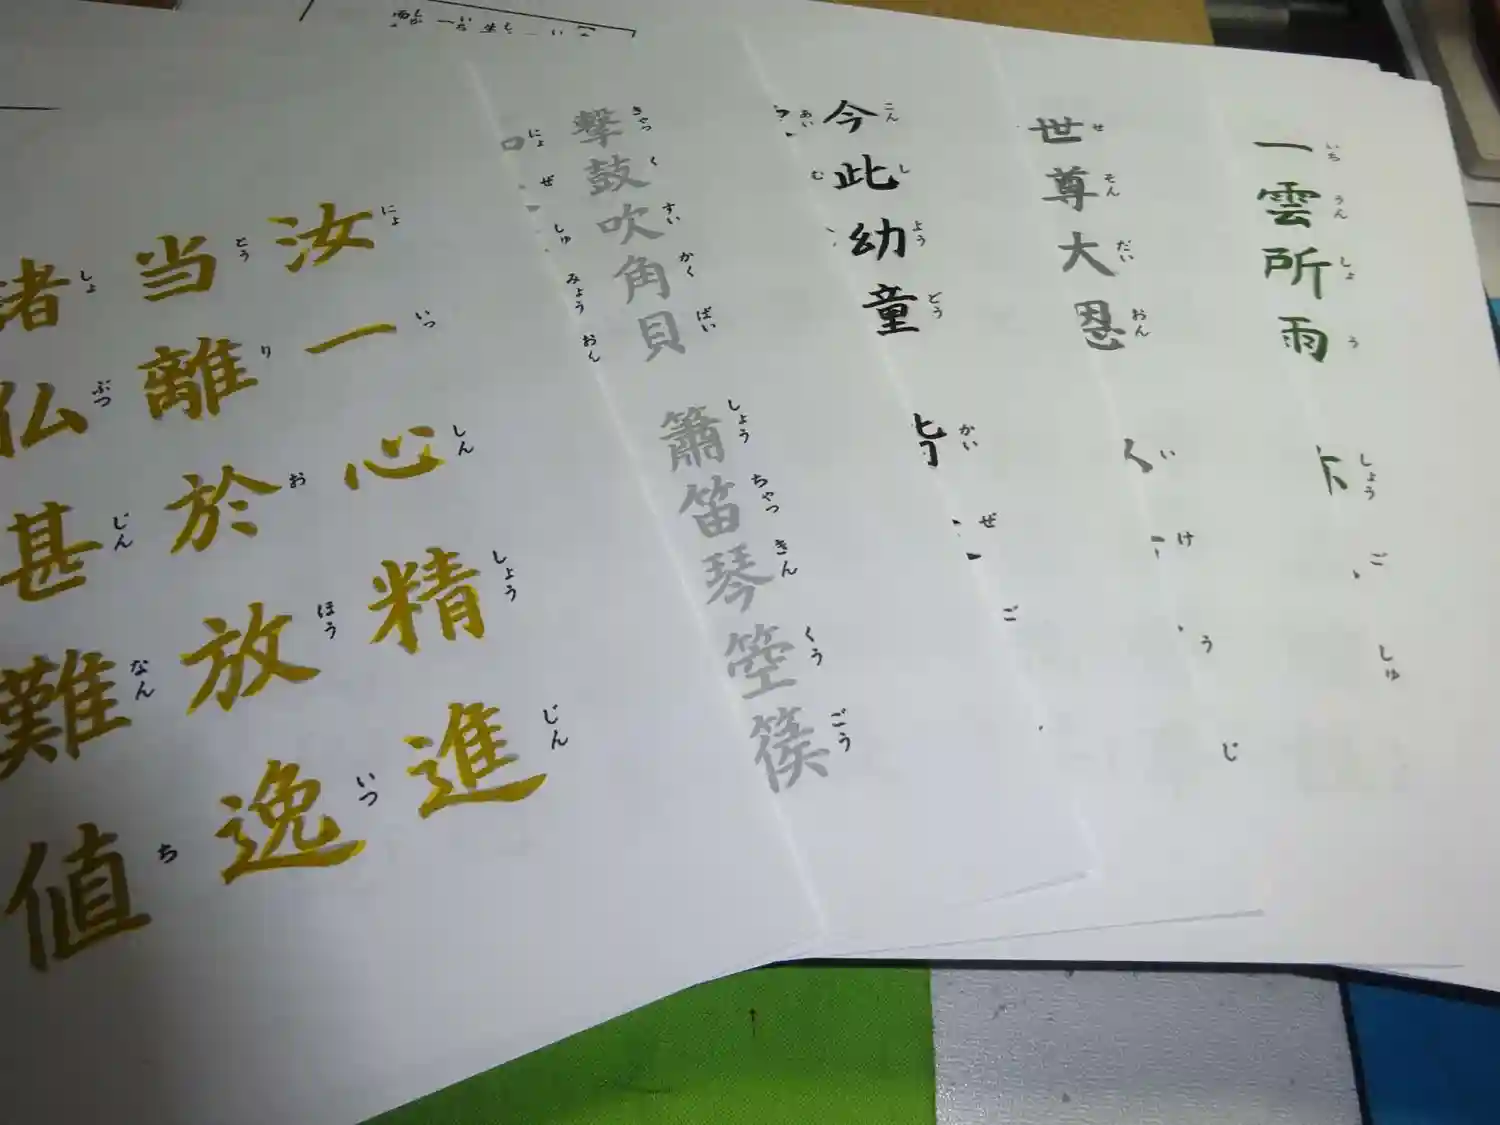 一雲所雨
いち うん しょ う
しょう ご しゅ じ
世尊大恩
せ そん だい おん
い け う
今此幼童
こん し よう どう
皆
かい ぜ ご
あい む
撃鼓吹角貝
きゃつ く すい かく ばい
簫笛琴箜篌
しょう ちゃつ きん くう ごう
にょ ぜ しゅ みょう おん
汝一心精進
にょ いつ しん しょう じん
当離於放逸
とう り お ほう いつ
諸仏甚難値
しょ ぶつ じん なん ち